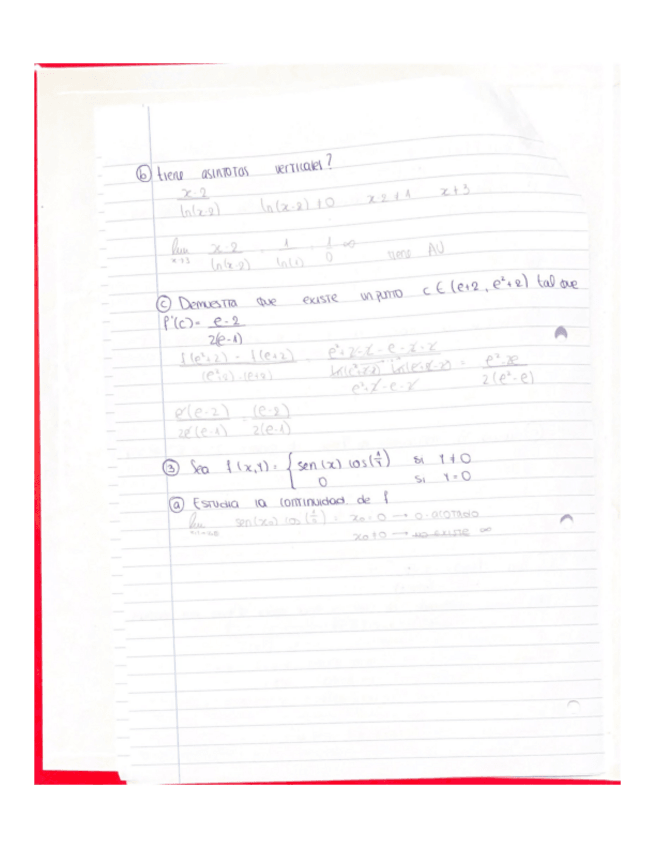 b) tiene asintotas verticales?
x-2/ln(x-2) ln(x-2)≠0 x≠2+1 x≠3
lim x→3 x-2/ln(x-2) = 1/ln(1) = 1/0 = ∞ tiene AV
c) Demuestra que existe un punto c ∈ (e+2, e²+2) tal que
f'(c) = e-2/2(e-1)
f(e²+2) - f(e+2)/(e²+2)-(e+2) =
e²-2e/2(e²-e)
e(e-2)/2e(e-1) = (e-2)/2(e-1)
3) Sea f(x,y) = { sen(x) cos(1/y) si y≠0
0 si y=0
a) Estudia la continuidad de f
lim sen(x₀) cos(1/y) = x₀=0 → 0·acotado
x₀≠0 → no existe ∞